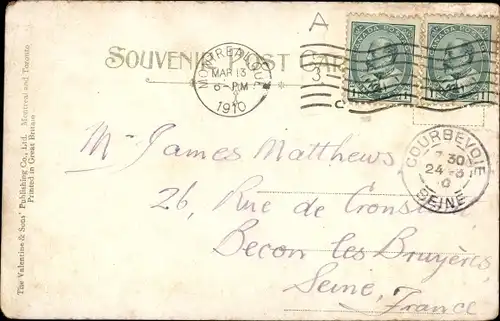 A
SOUVENIR POST CARD
MONTREAL QUE
MAR 13
6-PM
1910
3
C
CANADA POSTAGE
CANADA POSTAGE
COURBEVOIE
7 30
24 -3
10
SEINE
Mr James Matthews
26, Rue de Cronstadt
Becon les Bruyères
Seine, France
The Valentine & Sons' Publishing Co., Ltd. Montreal and Toronto
Printed in Great Britain